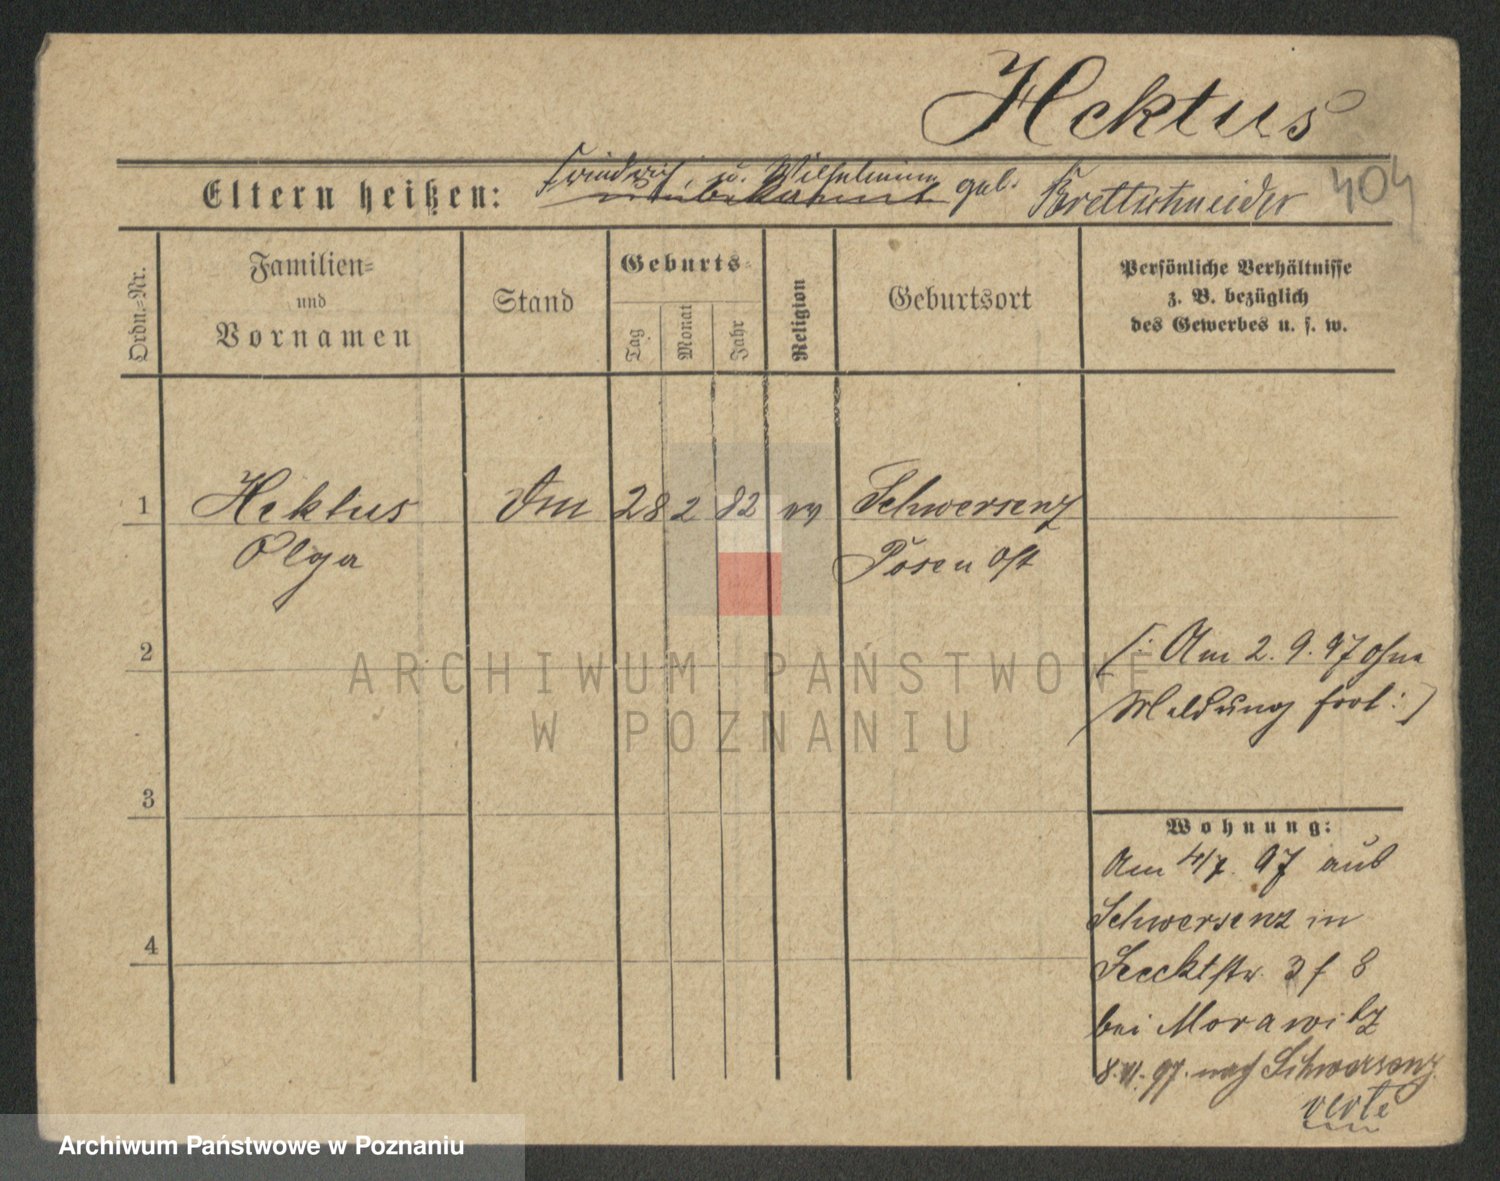 Hektus
Eltern heißen: Friedrich, u. Wilhelmine geb. Brettschneider 404
unbekannt
Ordn.=Nr.
Familien=
und
Vornamen
Stand
Geburts=
Tag
Monat
Jahr
Religion
Geburtsort
Persönliche Verhältnisse
z. B. bezüglich
des Gewerbes u. s. w.
1 Hektus 28 2 82 ev Schwersenz
Olga Posen Ost
2
[: Am 2. 9. 97 ohne
Meldung fort :]
3
Wohnung:
Am 4/7. 97 aus
Schwersenz in
3 f 8
4
bei Morawitz
8. 97. nach Schwersenz
verte
ARCHIWUM PAŃSTWOWE
W POZNANIU
Archiwum Państwowe w Poznaniu